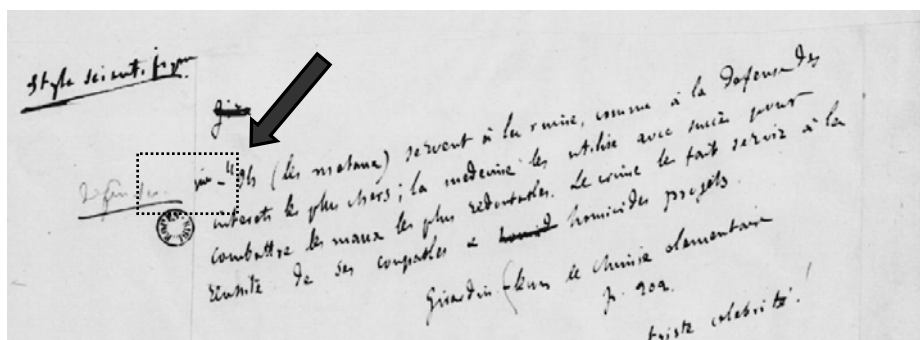 Style scientifique
"Ils (les métaux) servent à la ruine, comme à la défense des
intérêts les plus chers; la médecine les utilise avec succès pour
combattre les maux les plus redoutables. Le crime les fait servir à la
réussite de ses coupables & homicides projets.
Girardin - de chimie élémentaire
p. 202.
triste célébrité!